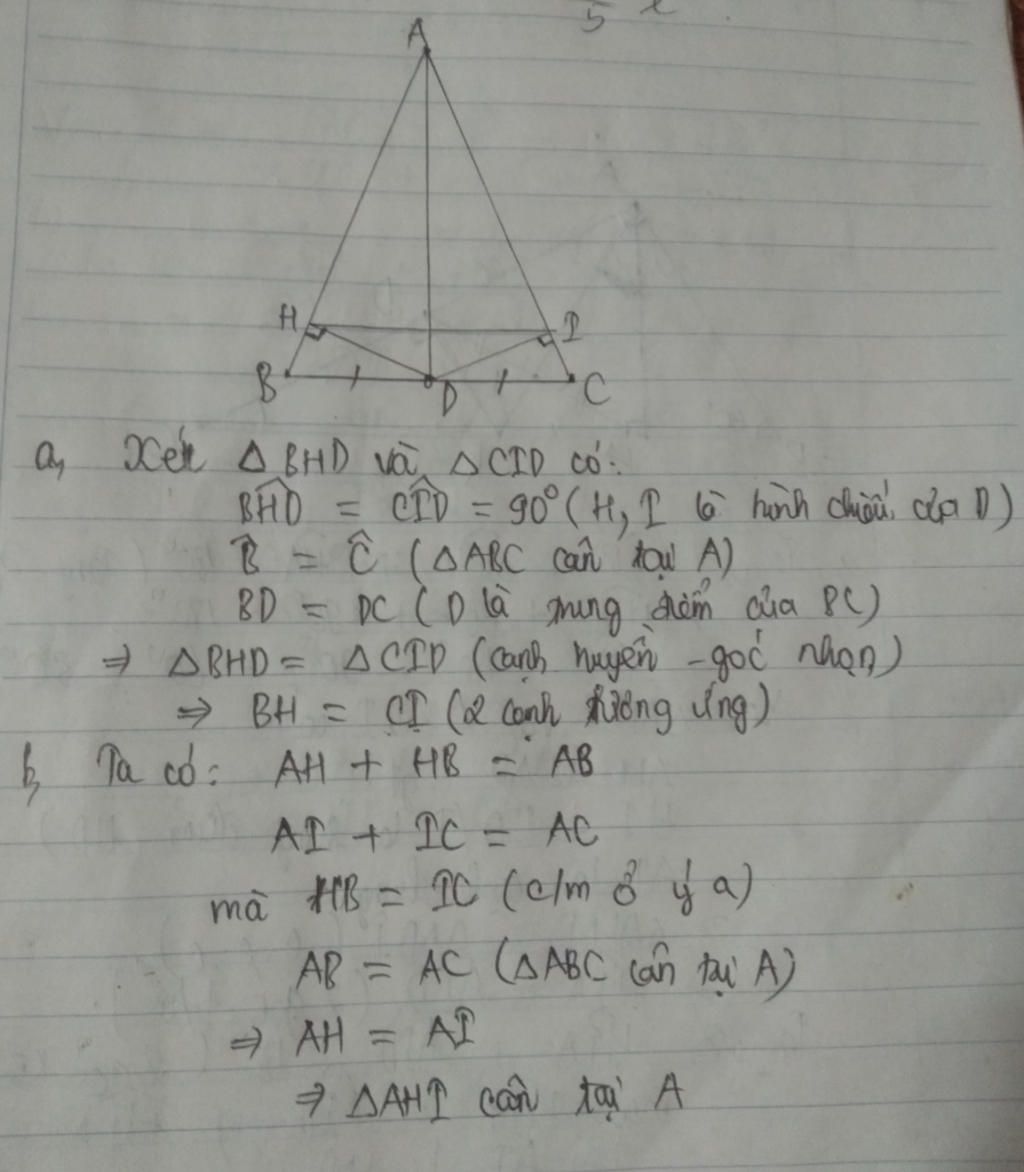 5
A
H
I
B
D
C
a, Xét △BHD và △CID có:
BHD̂ = CID̂ = 90° (H, I là hình chiếu của D)
B̂ = Ĉ (△ABC cân tại A)
BD = DC (D là trung điểm của BC)
⇒ △BHD = △CID (cạnh huyền - góc nhọn)
⇒ BH = CI (2 cạnh tương ứng)
b, Ta có: AH + HB = AB
AI + IC = AC
mà HB = IC (c/m ở ý a)
AB = AC (△ABC cân tại A)
⇒ AH = AI
⇒ △AHI cân tại A